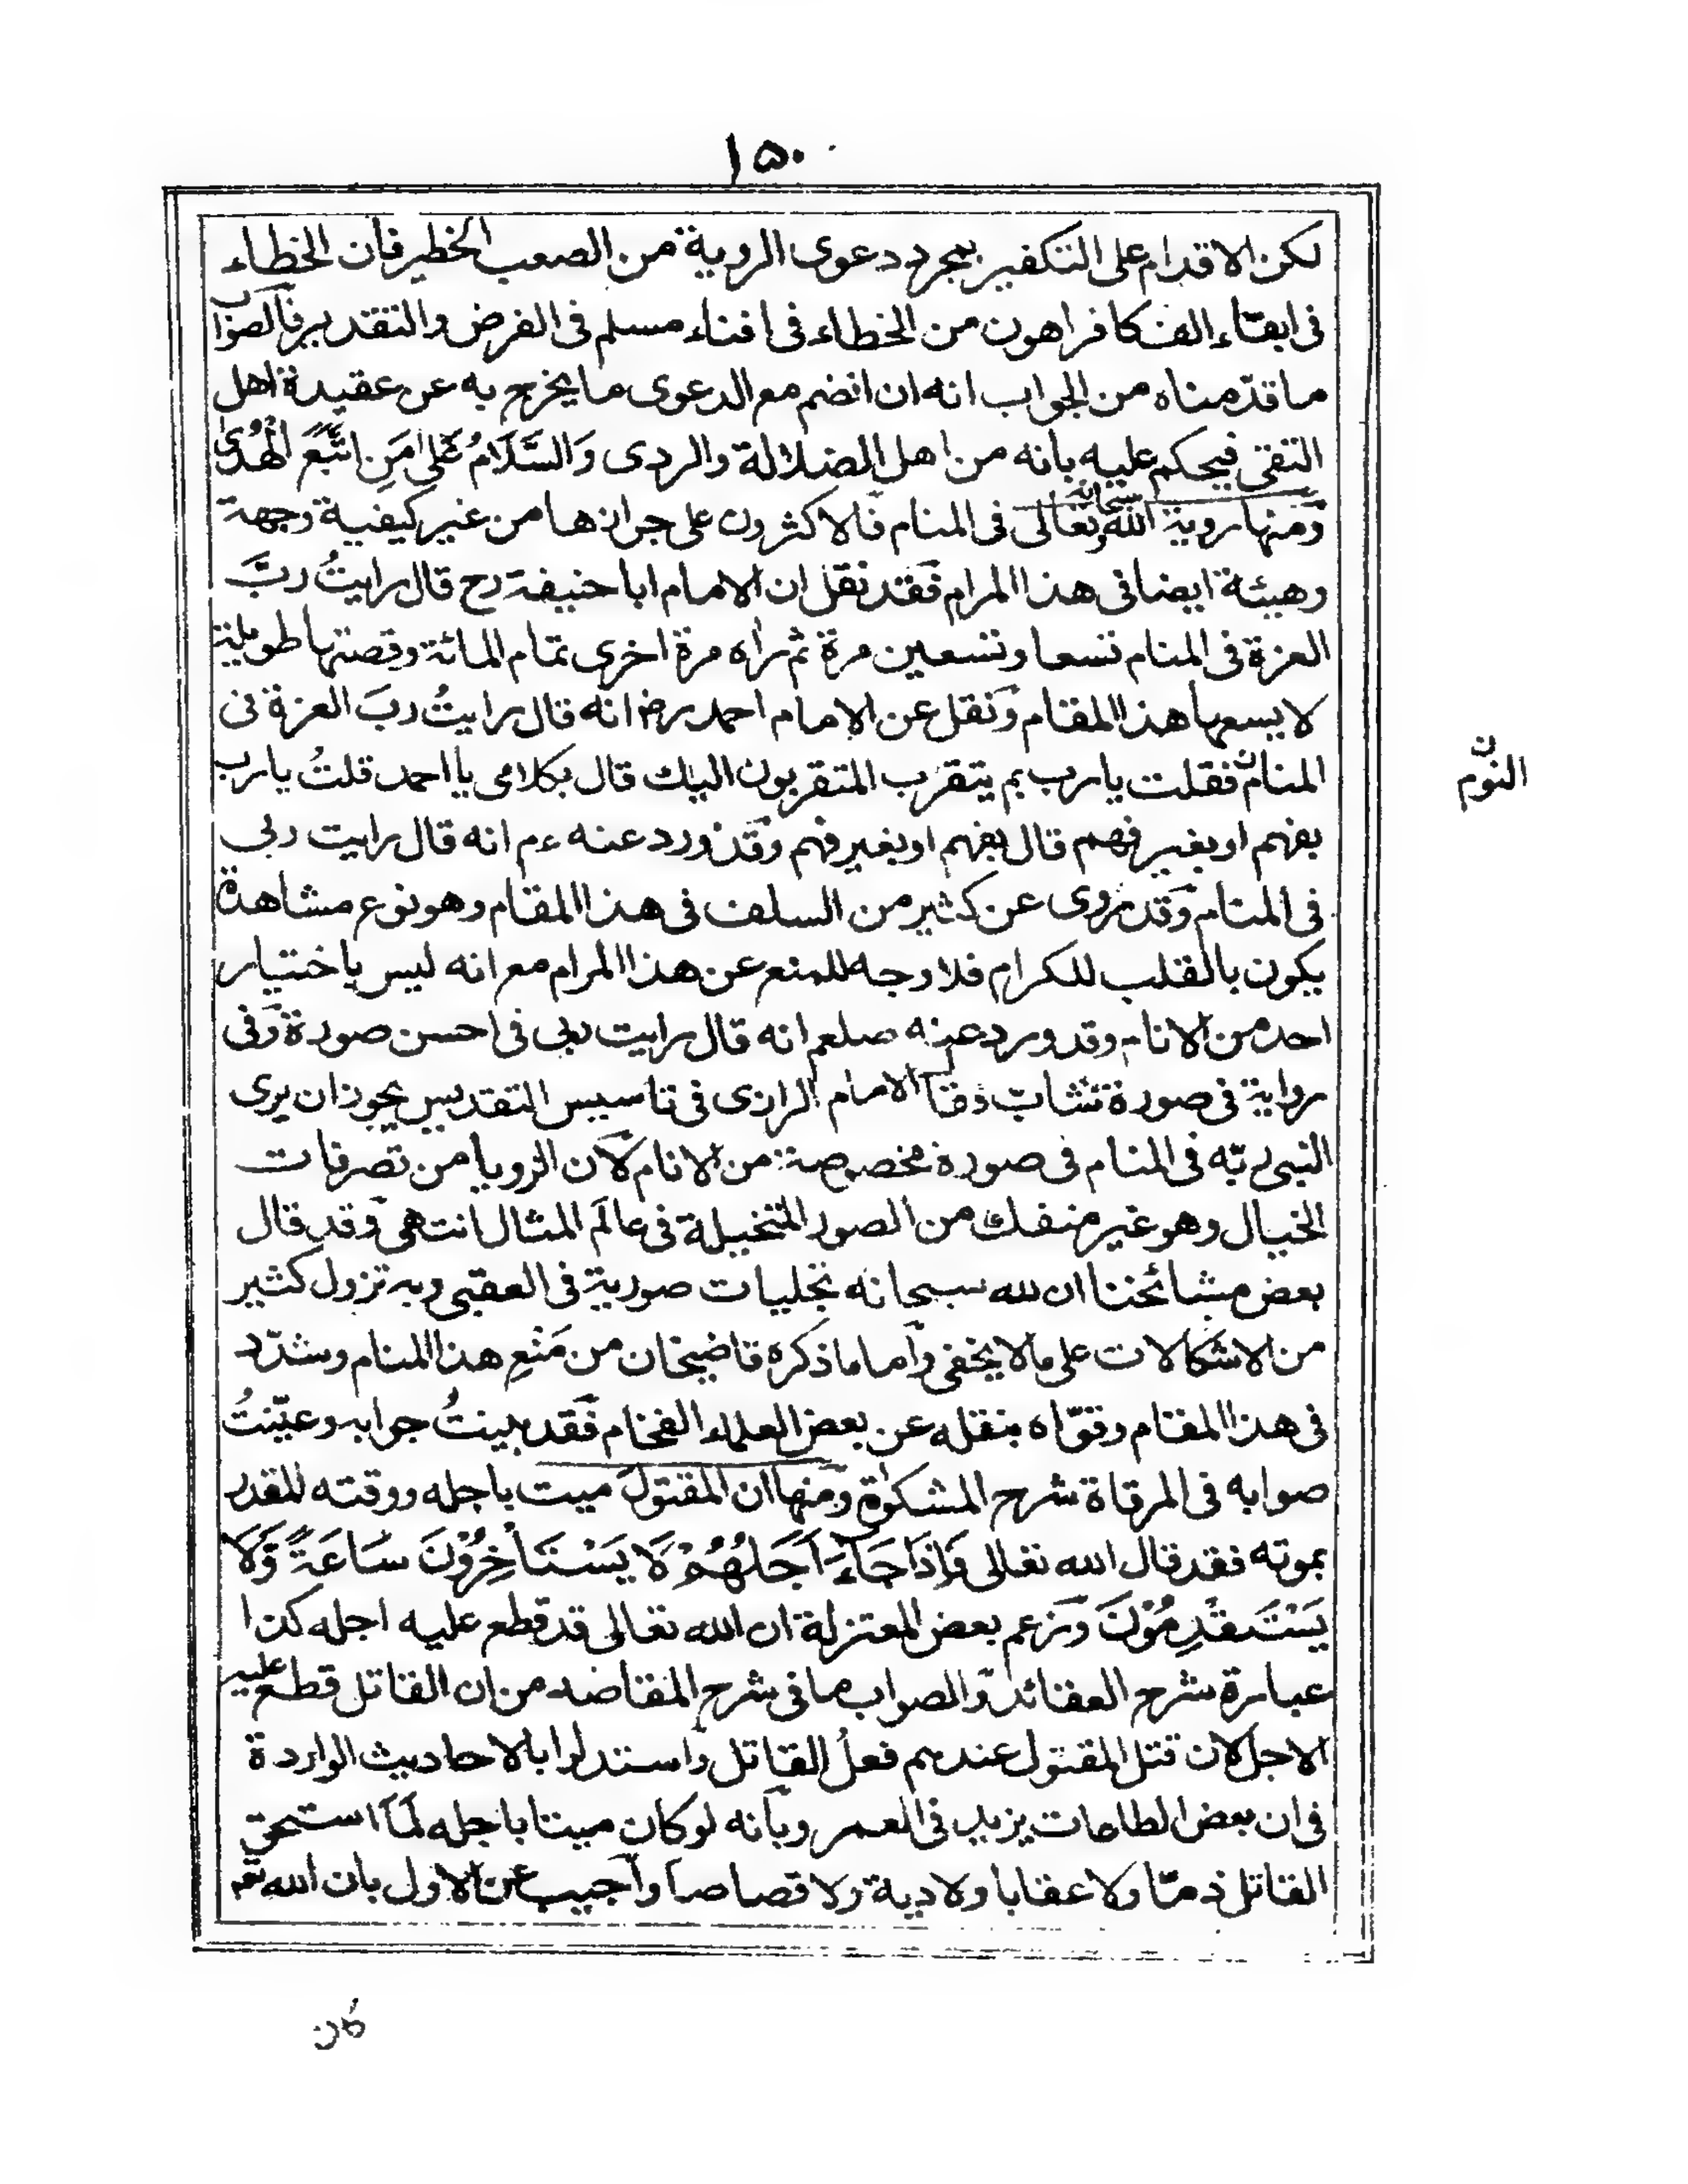 ١٥٠
لكن الاقدام على التكفير بمجرد دعوى الروية من الصعب الخطير فان الخطاء
فى ابقاء الف كافر اهون من الخطاء فى افناء مسلم فى الفرض والتقدير فالصواب
ما قدّمناه من الجواب انه ان انضم مع الدعوى ما يخرج به عن عقيدة اهل
التقى فيحكم عليه بانه من اهل الضلالة والردى وَالسَّلَامُ عَلٰى مَنِ اتَّبَعَ الْهُدٰى
ومنها روية الله سبحانه وتعالى فى المنام فالاكثرون على جوازها من غير كيفية وجهة
وهيئة ايضا فى هذا المرام فقد نقل ان الامام ابا حنيفة رح قال رايتُ ربَّ
العزة فى المنام تسعا وتسعين مرة ثم راه مرة اخرى تمام المائة وقصتها طويلة
لا يسعها هذا المقام ونقل عن الامام احمد رضـ انه قال رايتُ ربَ العزة فى
المنام فقلت يارب بم يتقرب المتقربون اليك قال بكلامى يا احمد قلتُ يارب
ن النوم
بفهم او بغير فهم قال بفهم او بغير فهم وقد ورد عنه ءم انه قال رايت ربى
فى المنام وقد روى عن كثير من السلف فى هذا المقام وهو نوع مشاهدة
يكون بالقلب للكرام فلا وجه للمنع عن هذا المرام مع انه ليس باختيار
احد من الانام وقد ورد عنه صلعم انه قال رايت ربى فى احسن صورة وفى
رواية فى صورة شابّ الامام الرازى فى تاسيس التقديس يجوز ان يرى
النبى ربّه فى المنام فى صورة مخصوصة من الانام لان الرويا من تصرفات
الخيال وهو غير منفك من الصور المتخيلة فى عالم المثال انتهى وقد قال
بعض مشائخنا ان لله سبحانه تجليات صورية فى العقبى وبه تزول كثير
من الاشكالات على ما لا يخفى واما ما ذكره قاضيخان من مَنْعِ هذا المنام وشدّد
فى هذا المقام وقوّاه بنقله عن بعض العلماء الفخام فقد بينتُ جوابه وعيّنتُ
صوابه فى المرقاة شرح المشكوٰة ومنها ان المقتول ميت باجله ووقته المقدر
بموته فقد قال الله تعالى فَاِذَا جَآءَ اَجَلُهُمْ لَا يَسْتَاْخِرُوْنَ سَاعَةً وَّلَا
يَسْتَقْدِمُوْنَ وزعم بعض المعتزلة ان الله تعالى قد قطع عليه اجله كذا
عبارة شرح العقائد والصواب ما فى شرح المقاصد من ان القاتل قطع عليه
الاجل لان قتل المقتول عندهم فعل القاتل واستدلوا بالاحاديث الواردة
فى ان بعض الطاعات يزيد فى العمر وبانه لو كان ميتا باجله لَمَا استحق
القاتل ذمّا ولا عقابا ولا دية ولا قصاصا واجيب عن الاول بان الله تعـ
كان